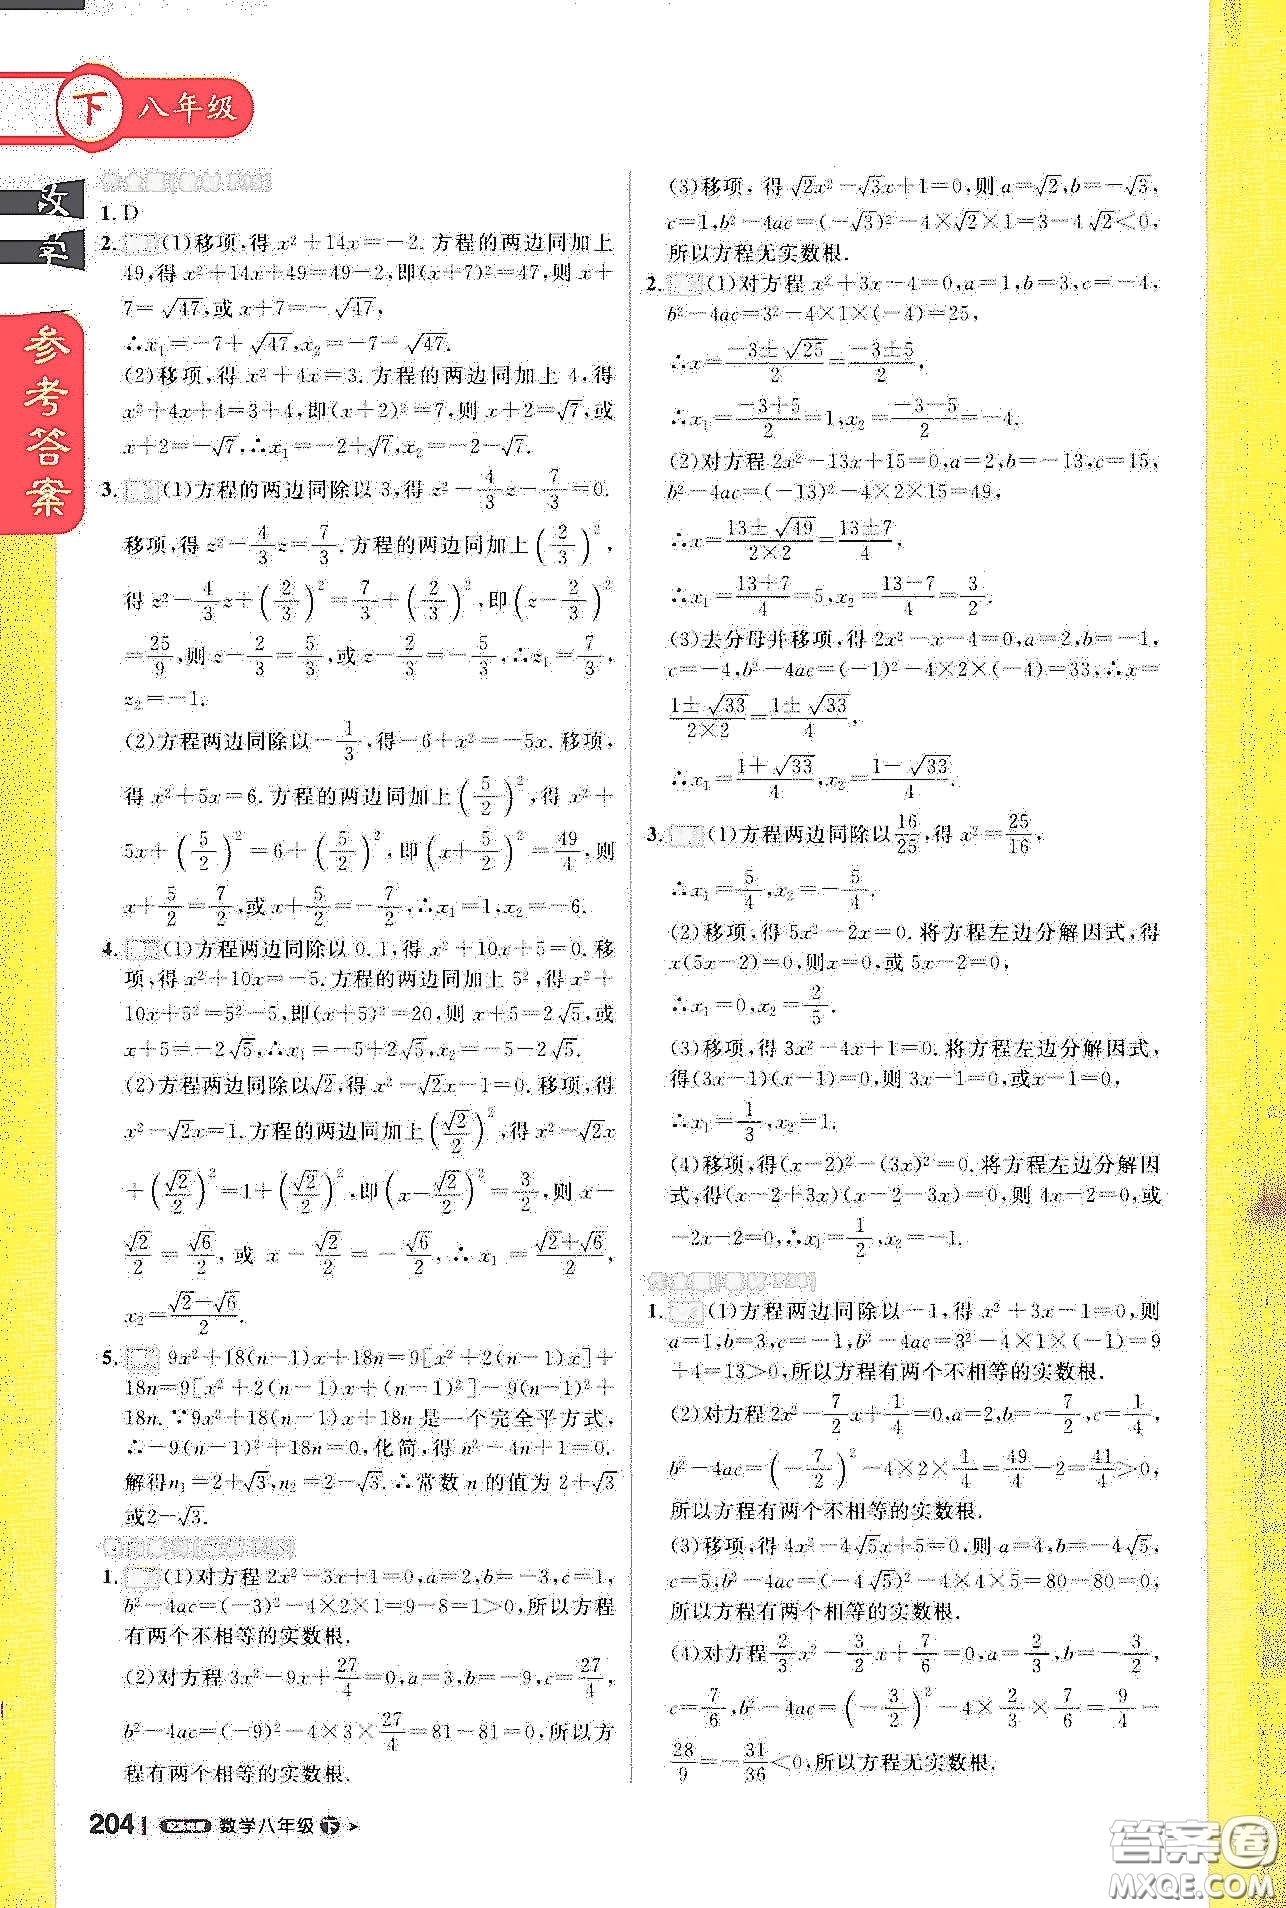 下 八年级
数学
参考答案
1. D
2. (1)移项,得 x²+14x=-2. 方程的两边同加上
49,得 x²+14x+49=49-2,即(x+7)²=47,则 x+
7=√47,或 x+7=-√47,
∴x₁=-7+√47,x₂=-7-√47.
(2)移项,得 x²+4x=3. 方程的两边同加上 4,得
x²+4x+4=3+4,即(x+2)²=7,则 x+2=√7,或
x+2=-√7,∴x₁=-2+√7,x₂=-2-√7.
3. (1)方程的两边同除以 3,得 z²-4/3z-7/3=0.
移项,得 z²-4/3z=7/3. 方程的两边同加上(2/3)²,
得 z²-4/3z+(2/3)²=7/3+(2/3)²,即(z-2/3)²
=25/9,则 z-2/3=5/3,或 z-2/3=-5/3,∴z₁=7/3,
z₂=-1.
(2)方程两边同除以-1/3,得-6+x²=-5x. 移项,
得 x²+5x=6. 方程的两边同加上(5/2)²,得 x²+
5x+(5/2)²=6+(5/2)²,即(x+5/2)²=49/4,则
x+5/2=7/2,或 x+5/2=-7/2,∴x₁=1,x₂=-6.
4. (1)方程两边同除以 0.1,得 x²+10x+5=0. 移
项,得 x²+10x=-5. 方程的两边同加上 5²,得 x²+
10x+5²=5²-5,即(x+5)²=20,则 x+5=2√5,或
x+5=-2√5,∴x₁=-5+2√5,x₂=-5-2√5.
(2)方程两边同除以√2,得 x²-√2x-1=0. 移项,得
x²-√2x=1. 方程的两边同加上(√2/2)²,得 x²-√2x
+(√2/2)²=1+(√2/2)²,即(x-√2/2)²=3/2,则 x-
√2/2=√6/2,或 x-√2/2=-√6/2,∴x₁=(√2+√6)/2,
x₂=(√2-√6)/2.
5. 9x²+18(n-1)x+18n=9[x²+2(n-1)x]+
18n=9[x²+2(n-1)x+(n-1)²]-9(n-1)²+
18n. ∵9x²+18(n-1)x+18n 是一个完全平方式,
∴-9(n-1)²+18n=0,化简,得 n²-4n+1=0.
解得n₁=2+√3,n₂=2-√3. ∴常数 n 的值为 2+√3
或2-√3.
1. (1)对方程 2x²-3x+1=0,a=2,b=-3,c=1,
b²-4ac=(-3)²-4×2×1=9-8=1>0,所以方程
有两个不相等的实数根.
(2)对方程 3x²-9x+27/4=0,a=3,b=-9,c=27/4,
b²-4ac=(-9)²-4×3×27/4=81-81=0,所以方
程有两个相等的实数根.
(3)移项,得 √2x²-√3x+1=0,则 a=√2,b=-√3,
c=1,b²-4ac=(-√3)²-4×√2×1=3-4√2<0,
所以方程无实数根.
2. (1)对方程 x²+3x-4=0,a=1,b=3,c=-4,
b²-4ac=3²-4×1×(-4)=25,
∴x=(-3±√25)/2=(-3±5)/2,
∴x₁=(-3+5)/2=1,x₂=(-3-5)/2=-4.
(2)对方程 2x²-13x+15=0,a=2,b=-13,c=15,
b²-4ac=(-13)²-4×2×15=49,
∴x=(13±√49)/(2×2)=(13±7)/4,
∴x₁=(13+7)/4=5,x₂=(13-7)/4=3/2.
(3)去分母并移项,得 2x²-x-4=0,a=2,b=-1,
c=-4,b²-4ac=(-1)²-4×2×(-4)=33,∴x=
(1±√33)/(2×2)=(1±√33)/4,
∴x₁=(1+√33)/4,x₂=(1-√33)/4.
3. (1)方程两边同除以16/25,得 x²=25/16,
∴x₁=5/4,x₂=-5/4.
(2)移项,得 5x²-2x=0. 将方程左边分解因式,得
x(5x-2)=0,则x=0,或 5x-2=0,
∴x₁=0,x₂=2/5.
(3)移项,得 3x²-4x+1=0. 将方程左边分解因式,
得(3x-1)(x-1)=0,则 3x-1=0,或x-1=0,
∴x₁=1/3,x₂=1.
(4)移项,得(x-2)²-(3x)²=0. 将方程左边分解因
式,得(x-2+3x)(x-2-3x)=0,则 4x-2=0,或
-2x-2=0,∴x₁=1/2,x₂=-1.
1. (1)方程两边同除以-1,得 x²+3x-1=0,则
a=1,b=3,c=-1,b²-4ac=3²-4×1×(-1)=9
+4=13>0,所以方程有两个不相等的实数根.
(2)对方程 2x²-7/2x+1/4=0,a=2,b=-7/2,c=1/4,
b²-4ac=(-7/2)²-4×2×1/4=49/4-2=41/4>0,
所以方程有两个不相等的实数根.
(3)移项,得 4x²-4√5x+5=0,则 a=4,b=-4√5,
c=5,b²-4ac=(-4√5)²-4×4×5=80-80=0,
所以方程有两个相等的实数根.
(4)对方程2/3x²-3/2x+7/6=0,a=2/3,b=-3/2,
c=7/6,b²-4ac=(-3/2)²-4×2/3×7/6=9/4-
28/9=-31/36<0,所以方程无实数根.
204 数学八年级 下
答案卷
MXQE.COM